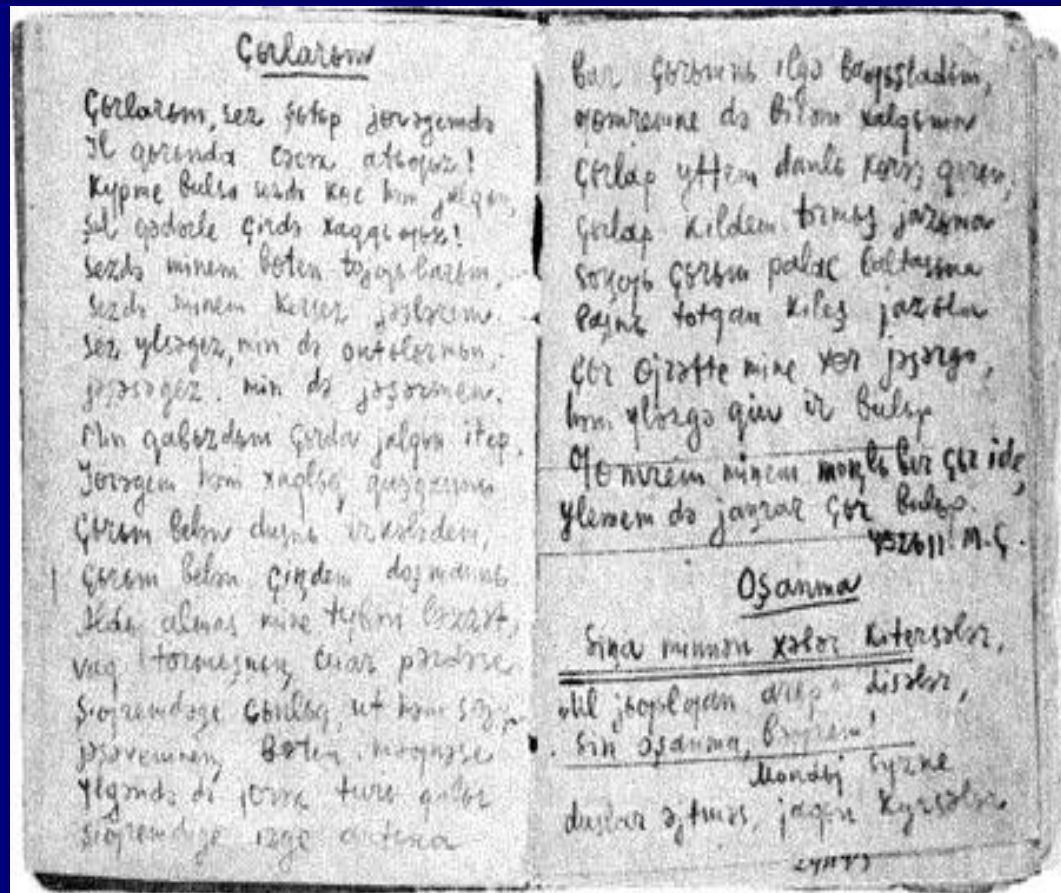 Çьrlarьm
Çьrlarьm, sez şьtьp jɵrəgemdə
Il qьrьnda cəcək atьƣьz!
Kypme bulsa sezdə kɵc həm jalqьn,
Şul qədərle çirdə xaqqьƣьz!
Sezdə minem bɵten tojƣьlarьm,
Sezdə minem kersez jəşlərem.
Sez ylsəgez, min də ontьlьrmьn,
jəşəsəgez min də jəşərmen.
Min qabьzdьm çьrda jalqьn itep
Jɵrəgem həm xaqlьq quşqannь
Çьrьm belən dusnь irkələdem,
Çьrьm belən çiŋdem doşmannь
almas mine tybən ləzzət,
vaq tormьşnьŋ cuar pərdəse
Şiƣremdəge cьnlьq, ut həm
jəşəvemneŋ bɵten məƣnəse
Ylgəndə də turь qalьr
Şiƣremdəge izge antьna
bar çьrьmnь ilgə baƣьşladьm,
ƣomremne də
Çьrlap yttem danlь kɵrəş qьrьn,
Çьrlap kildem tormьş jazьna
soŋƣь çьrьm palac baltasьna
başnь totqan kileş jazьla
Çьr ɵjrətte mine xɵr jəşərgə,
həm ylərgə qьju ir bulьp
Ƣomrem minem moŋlь ber çьr ide,
Ylemem də jaŋrar çьr bulьp.
M.Ç.
Oşanma
Siŋa minnən xəbər kitersələr,
disələr,
Sin oşanma, bəƣrem!
Mondьj syzne
duslar əjtməs, jaqьn kyrsələr